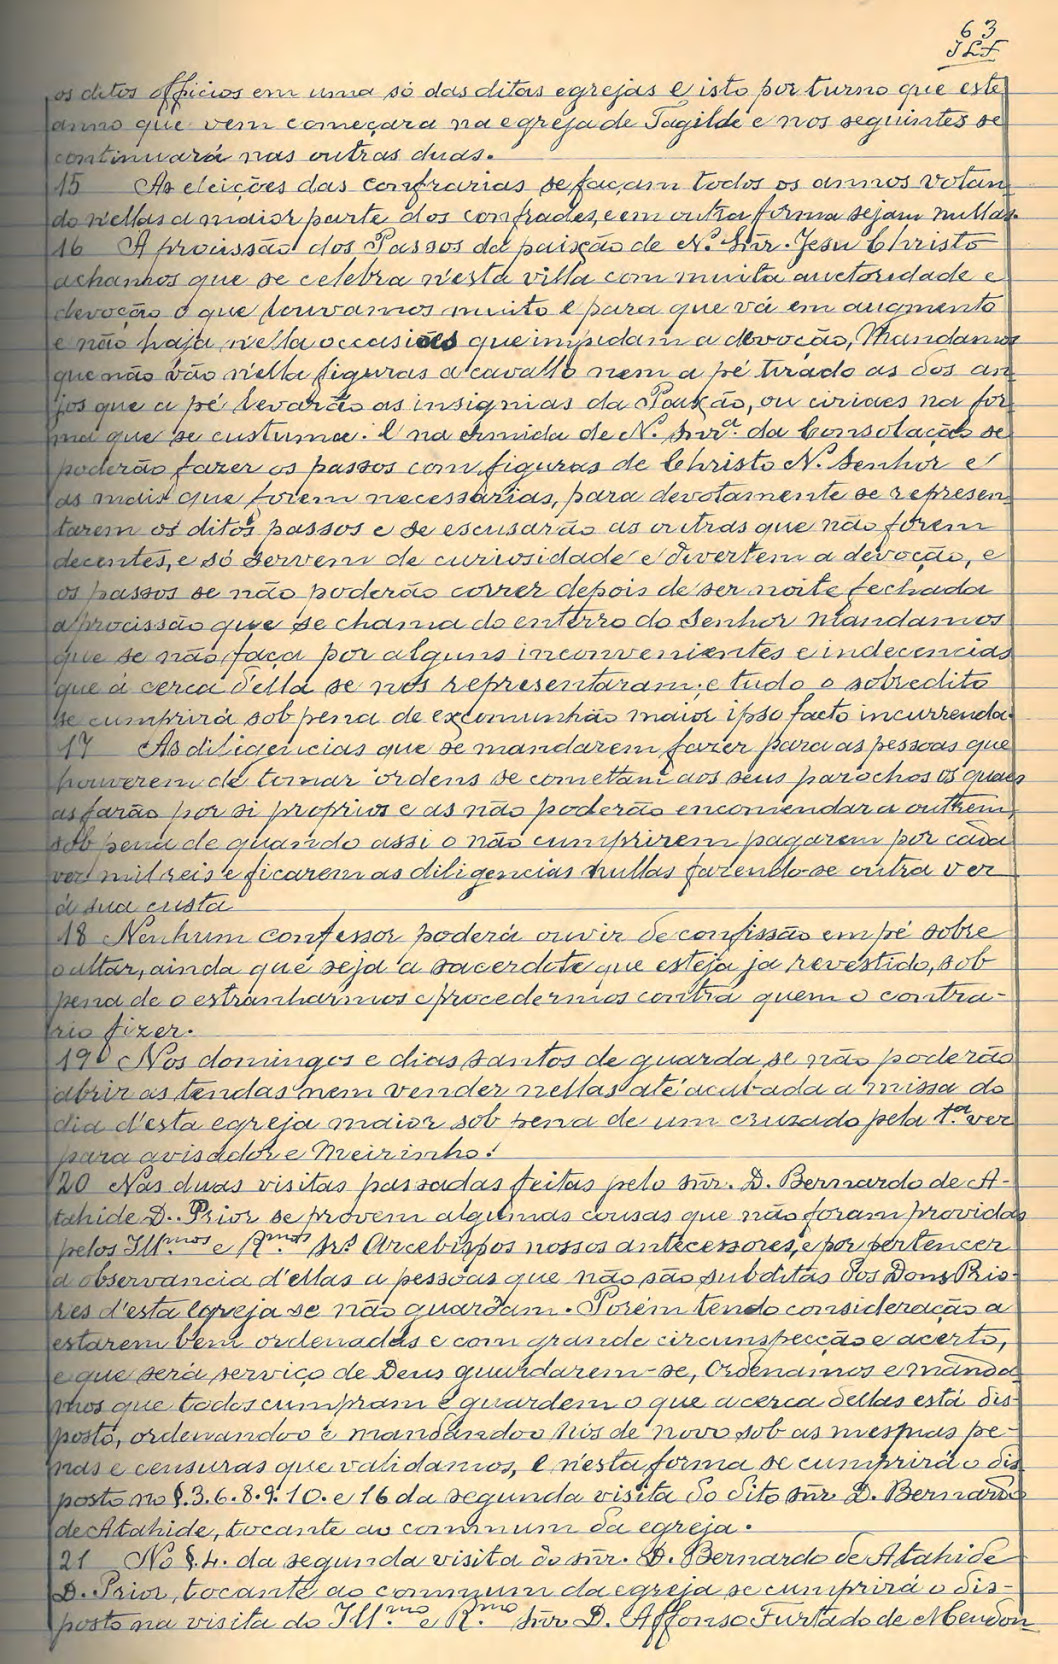 63
JLF
os ditos officios em uma só das ditas egrejas e isto por turno que este
anno que vem começara na egreja de Tagilde e nos seguintes se
continuará nas outras duas.
15 As eleições das confrarias se façam todos os annos votan
do n'ellas a maior parte dos confrades, e em outra forma sejam nullas.
16 A procissão dos Passos da paixção de N. Snr. Jesu Christo
achamos que se celebra n'esta villa com muita auctoridade e
devoção o que louvamos muito e para que vá em augmento
e não haja n'ella occasiões que impidam a devoção, Mandamos
que não vão n'ella figuras a cavallo nem a pé tirado as dos an
jos que a pé levarão as insignias da Paixão, ou ciriaes na for
ma que se custuma. E na ermida de N. Snrª. da Consolação se
poderão fazer os passos com figuras de Christo N. Senhor e
as mais que forem necessarias, para devotamente se represen
tarem os ditos passos e se escusarão as outras que não forem
decentes, e só servem de curiosidade e divertem a devoção, e
os passos se não poderão correr depois de ser noite fechada
a procissão que se chama do enterro do Senhor Mandamos
que se não faça por alguns inconvenientes e indecencias
que á cerca d'ella se nos representaram; e tudo o sobredito
se cumprirá sob pena de excomunhão maior ipso facto incurrenda.
17 As diligencias que se mandarem fazer para as pessoas que
houverem de tomar ordens se comettam aos seus parochos os quaes
as farão por si proprios e as não poderão encomendar a outrem,
sob pena de quando assi o não cumprirem pagarem por cada
vez mil reis e ficarem as diligencias nullas fazendo-se outra vez
á sua custa
18 Nenhum confessor poderá ouvir de confissão em pé sobre
o altar, ainda que seja a sacerdote que esteja ja revestido, sob
pena de o estranharmos e procedermos contra quem o contra-
rio fizer.
19 Nos domingos e dias santos de guarda se não poderão
abrir as tendas nem vender nellas até acabada a missa do
dia d'esta egreja maior sob pena de um cruzado pela 1.ª vez
para avisador e Meirinho.
20 Nas duas visitas passadas feitas pelo snr. D. Bernardo de A-
tahide D. Prior se provem algumas cousas que não foram providas
pelos Ill.mos e R.mos Srs Arcebispos nossos antecessores, e por pertencer
a observancia d'ellas a pessoas que não são subditas dos Dons Prio-
res d'esta Egreja se não guardam. Porém tendo consideração a
estarem bem ordenadas e com grande circunspecção e acerto,
e que será serviço de Deus guardarem-se, Ordenamos e manda
mos que todos cumpram e guardem o que acerca dellas está dis-
posto, ordenando o e mandando o Nós de novo sob as mesmas pe-
nas e censuras que validamos, E n'esta forma se cumprirá o dis
posto no §. 3. 6. 8. 9. 10. e 16 da segunda visita do dito snr. D. Bernardo
de Atahide, tocante ao commum da egreja.
21 No §. 4. da segunda visita do snr. D. Bernardo de Atahide
D. Prior, tocante ao commum da egreja se cumprirá o dis-
posto na visita do Ill.mo e R.mo Snr D. Affonso Furtado de Mendon